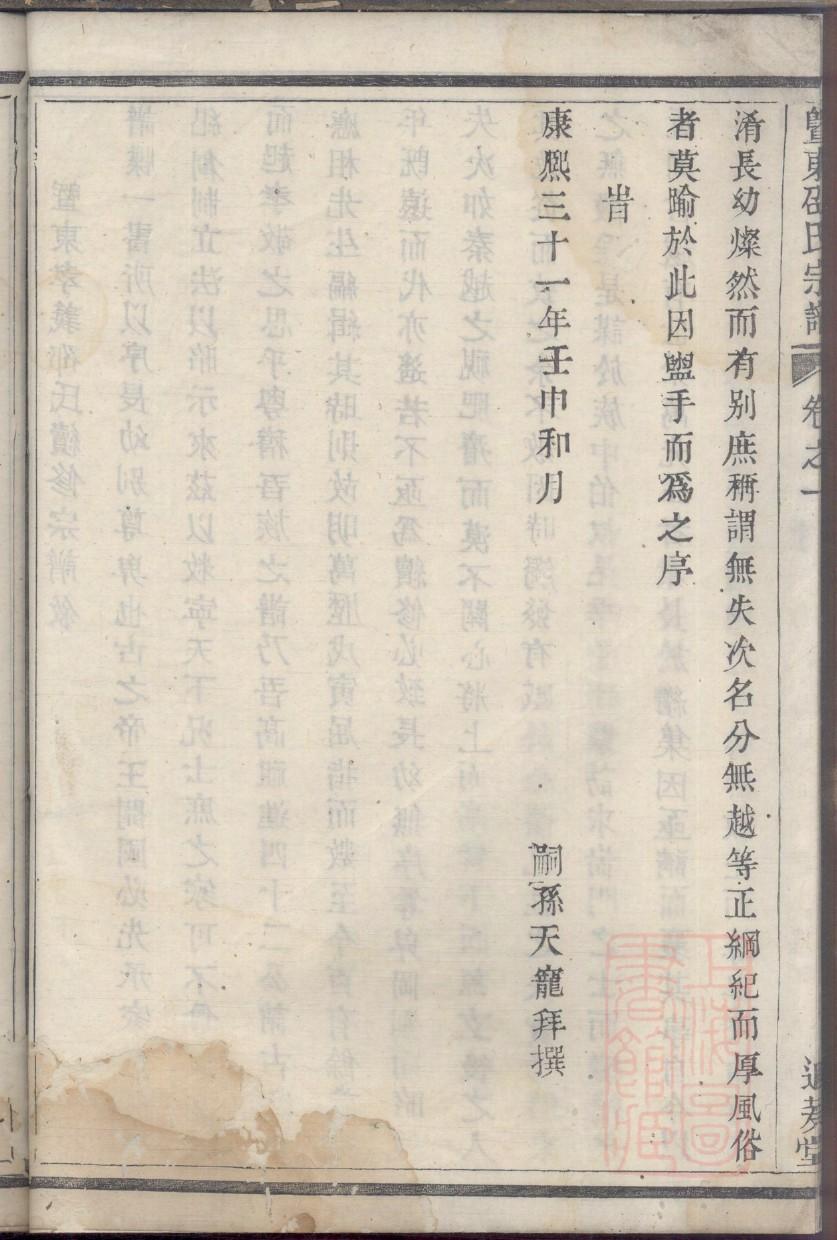 暨東邵氏宗譜 卷之一 追孝堂
淆長幼燦然而有别庶稱謂無失次名分無越等正綱紀而厚風俗
者莫踰於此因盥手而爲之序
旹
康熙三十一年壬申和月
嗣孫天寵拜撰
上海圖書館藏